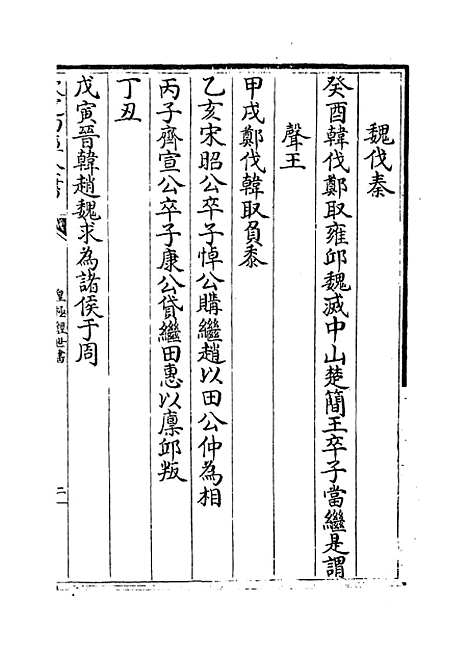 魏伐秦
癸酉韓伐鄭取雍邱魏滅中山楚簡王卒子當繼是謂
聲王
甲戌鄭伐韓取負黍
乙亥宋昭公卒子悼公購繼趙以田公仲為相
丙子齊宣公卒子康公貸繼田惠以廩邱叛
丁丑
戊寅晉韓趙魏求為諸侯于周
皇極經世書